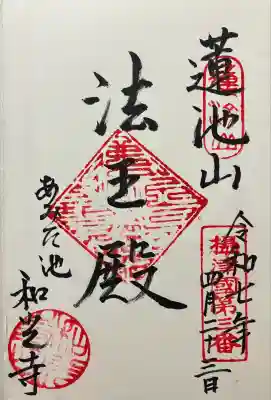 蓮池山
令和七年
四月二十二日
摂津國第三番
法王殿
あみだ池
和光寺